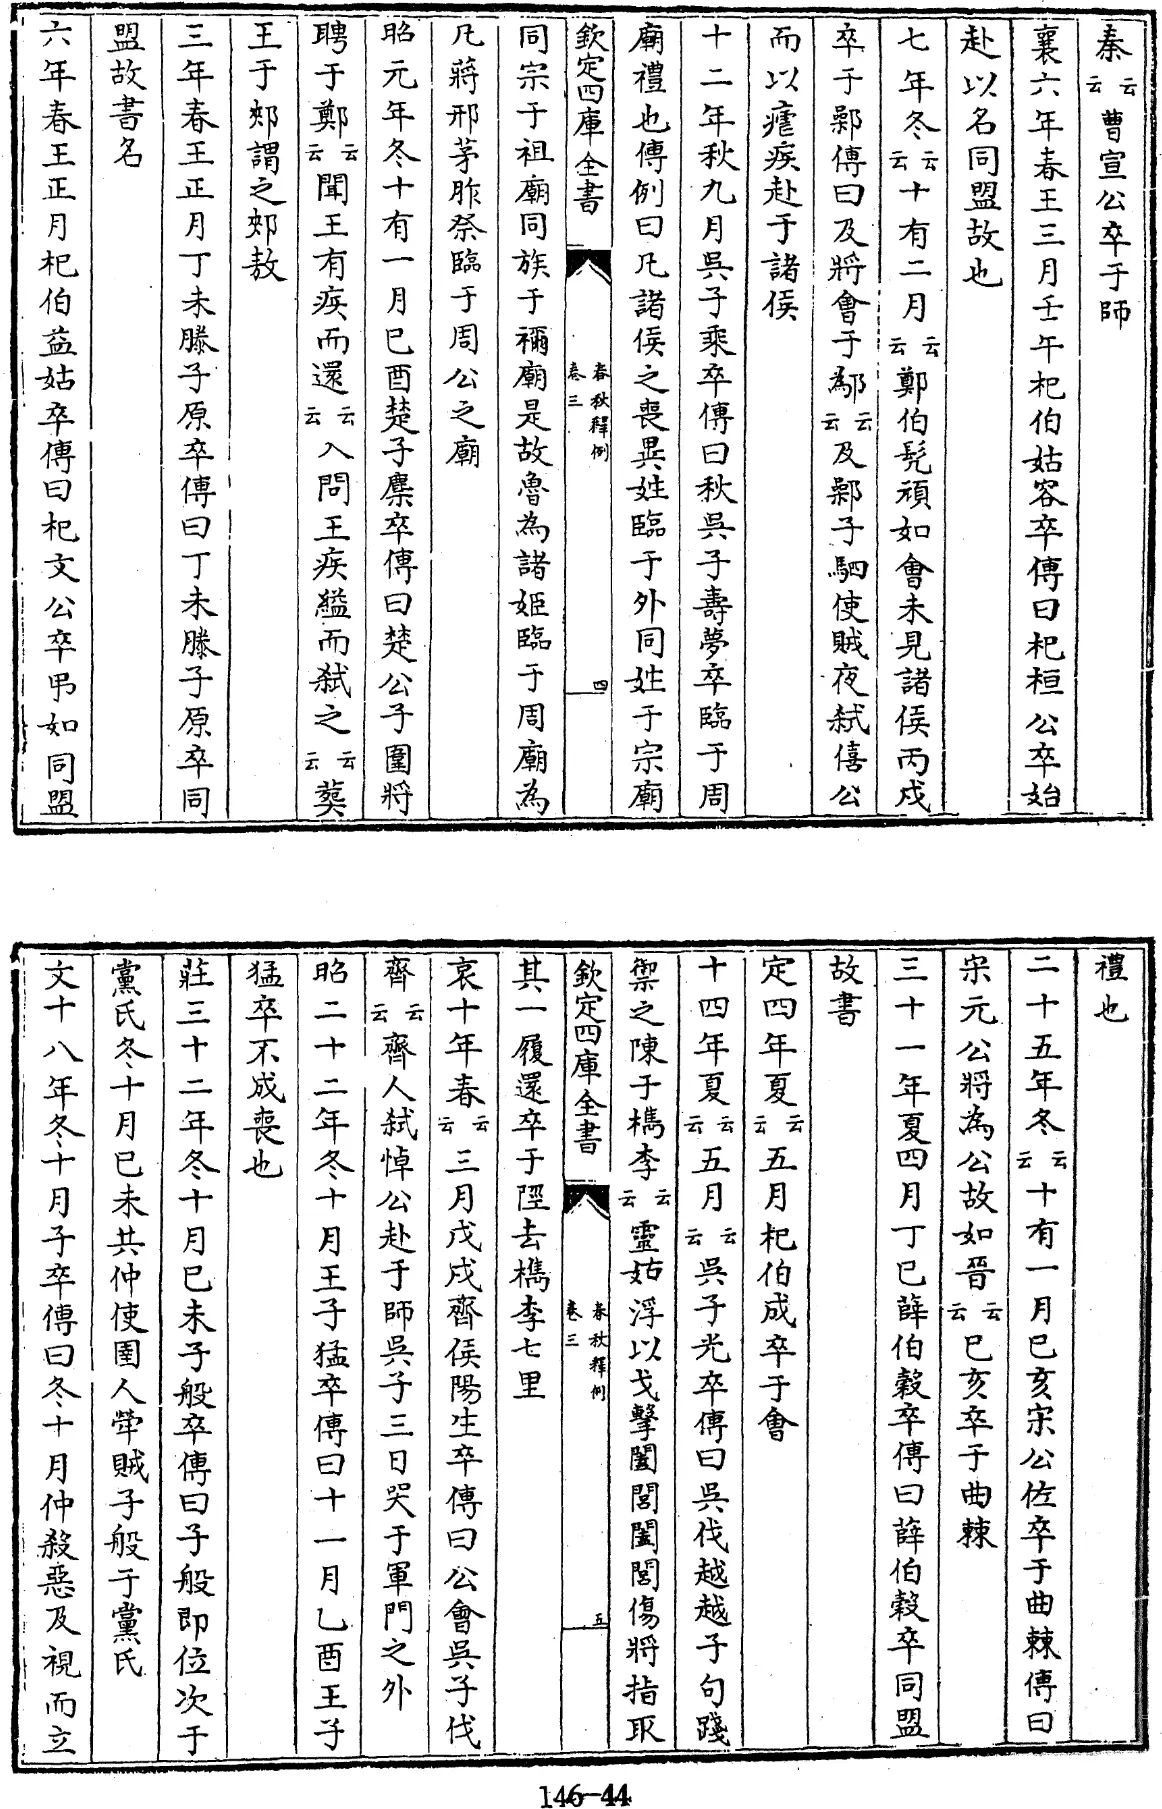 秦云云曹宣公卒于師
襄六年春王三月壬午杞伯姑容卒傳曰杞桓公卒始
赴以名同盟故也
七年冬云云十有二月云云鄭伯髠頑如會未見諸侯丙戍
卒于鄵傳曰及將會于鄬云云及鄵子駟使賊夜弑僖公
而以瘧疾赴于諸侯
十二年秋九月吳子乘卒傳曰秋吳子壽夢卒臨于周
廟禮也傳例曰凡諸侯之喪異姓臨于外同姓于宗廟
欽定四庫全書
春秋釋例
卷三
四
同宗于祖廟同族于禰廟是故魯為諸姬臨于周廟為
凡蔣邢茅胙祭臨于周公之廟
昭元年冬十有一月已酉楚子麇卒傳曰楚公子圍將
聘于鄭云云聞王有疾而還云云入問王疾縊而弑之云云葬
王于郟謂之郟敖
三年春王正月丁未滕子原卒傳曰丁未滕子原卒同
盟故書名
六年春王正月杞伯益姑卒傳曰杞文公卒弔如同盟
禮也
二十五年冬云云十有一月已亥宋公佐卒于曲棘傳曰
宋元公將為公故如晉云云已亥卒于曲棘
三十一年夏四月丁已薛伯穀卒傳曰薛伯穀卒同盟
故書
定四年夏云云五月杞伯成卒于會
十四年夏云云五月云云吳子光卒傳曰吳伐越越子句踐
禦之陳于檇李云云靈姑浮以戈擊闔閭闔閭傷將指取
欽定四庫全書
春秋釋例
卷三
五
其一履還卒于陘去檇李七里
哀十年春云云三月戊戍齊侯陽生卒傳曰公會吳子伐
齊云云齊人弑悼公赴于師吳子三日哭于軍門之外
昭二十二年冬十月王子猛卒傳曰十一月乙酉王子
猛卒不成喪也
莊三十二年冬十月已未子般卒傳曰子般即位次于
黨氏冬十月已未共仲使圉人犖賊子般于黨氏
文十八年冬十月子卒傳曰冬十月仲殺惡及視而立
146-44